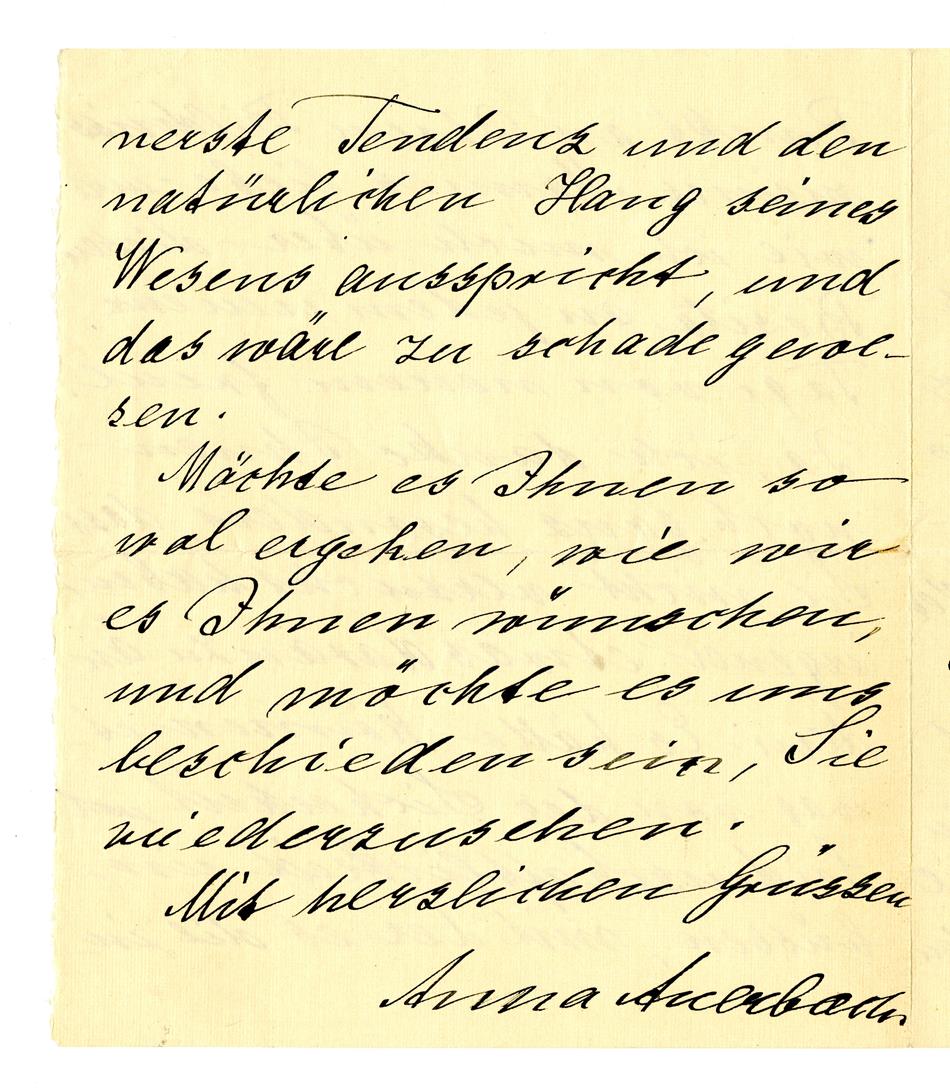 nerste Tendenz und den
natürlichen Hang seines
Wesens ausspricht, und
das wäre zu schade gewe-
sen.
Möchte es Ihnen so
wol ergehen, wie wir
es Ihnen wünschen,
und möchte es uns
beschieden sein, Sie
wiederzusehen.
Mit herzlichen Grüssen
Anna Auerbach.